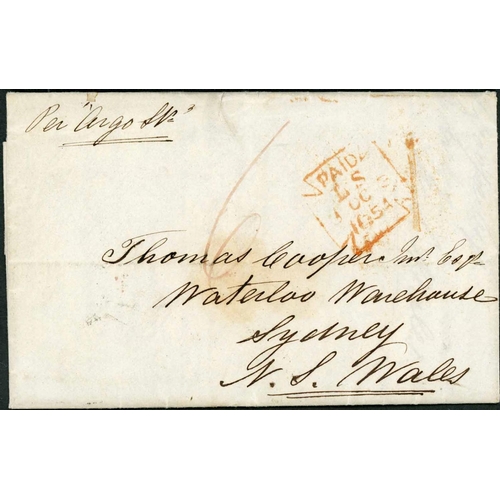 Per "Argo Str"
6
PAID
LS
4 OC 3
1854
Thomas Cooper Junr Esqr
Waterloo Warehouse
Sydney
N. S. Wales